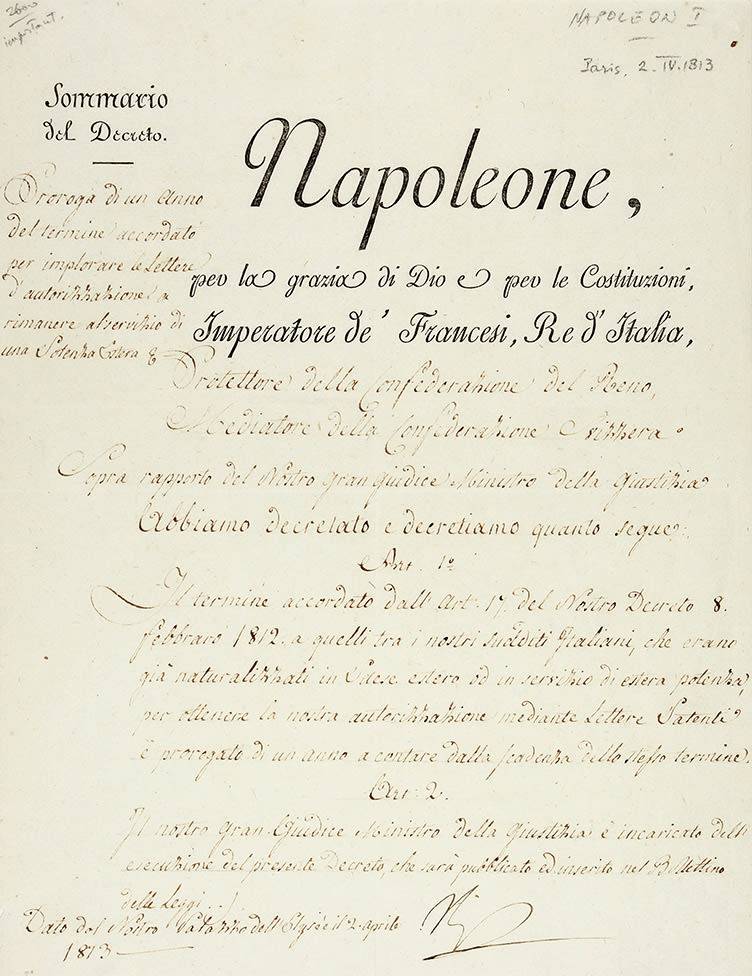 2600
important.
NAPOLEON I
Paris, 2. IV. 1813
Sommario
del Decreto.
Proroga di un Anno
del termine accordato
per implorare le Lettere
d'autorizzazione a
rimanere al servizio di
una Potenza Estera
Napoleone,
per la grazia di Dio e per le Costituzioni,
Imperatore de' Francesi, Re d'Italia,
Protettore della Confederazione del Reno,
Mediatore della Confederazione Svizzera.
Sopra rapporto del Nostro Gran Giudice Ministro della Giustizia
Abbiamo decretato e decretiamo quanto segue:
Art. 1º
Il termine accordato dall'Art. 17. del Nostro Decreto 8.
febbraro 1812. a quelli tra i nostri sudditi Italiani, che erano
già naturalizzati in Paese estero od in servizio di estera potenza,
per ottenere la nostra autorizzazione mediante Lettere Patenti
è prorogato di un anno a contare dalla scadenza dello stesso termine.
Art. 2.
Il nostro Gran Giudice Ministro della Giustizia è incaricato dell'
esecuzione del presente Decreto, che sarà pubblicato ed inserito nel Bollettino
delle Leggi ./.
Dato dal Nostro Palazzo dell'Elysée il 2. aprile
1813